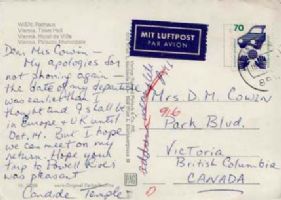 Wien, Rathaus
Vienna, Town Hall
Vienne, Hôtel de Ville
Vienna, Palazzo Municipale
MIT LUFTPOST
PAR AVION
70
Dear Mrs Cowin –
My apologies for
not phoning again –
the date of my departure
was earlier than I
thought and I shall be
in Europe & UK until
Oct. 14. But I hope
we can meet on my
return. Hope your
trip to Powell River
was pleasant
Candide Temple
Mrs. D. M. Cowin
916
Park Blvd.
Victoria
British Columbia
CANADA